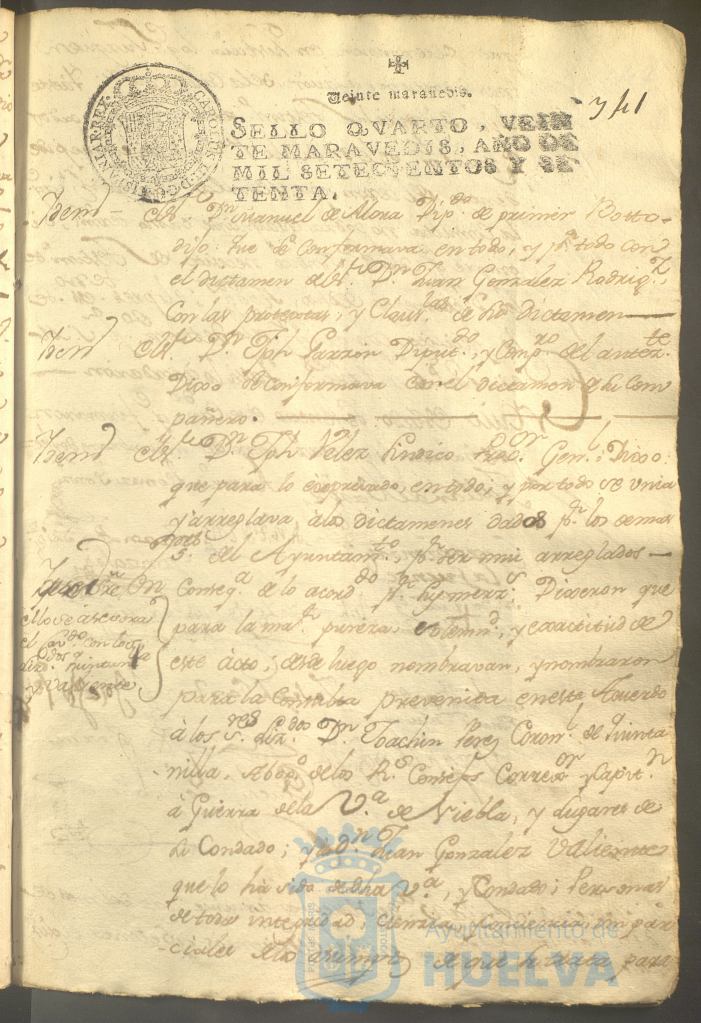 Veinte marauedis.
341
SELLO QVARTO, VEIN
TE MARAVEDIS, AÑO DE
MIL SETECIENTOS Y SE
TENTA.
CAROLUS III D. G. HISPANIAR. REX
Dn. Manuel de Alora Dipdo. de primer Votto
dijo: que se Conformava en todo, y pr. todo con
el dictamen del Sr. Dn. Juan Gonzalez Rodrigz.
Con las protextas, y Claus.las de dho dictamen
Dn. Jph Garzon Diputdo. y Compro. del antezte.
Dixo se Conformava con el dictamen de su Com
pañero.
Dn. Jph Velez Pror. Genl. Dixo:
que para lo expresado, en todo, y por todo se unia
y arreglava, a los dictamenes dados pr. los demas
del Ayuntamto. pr. ser mui arreglados
Conseqa. de lo acorddo. pr. Dixeron que
para la mar. pureza, solemnd. y exactitud de
este acto, desde luego nombravan, y nombraron
para la Consulta prevenida en este Acuerdo
à los Sres. Lizdos. Dn. Joachin Perez Coronl. de Quinta
nilla, Abogdo. de los Rs. Consejos Correxor. y Capitn.
à Guerra de la Va. de Niebla, y lugares de
su Condado; y a Dn. Juan Gonzalez Valiente
que lo ha sido de dha Va. y Condado; Personas
de toda integridad, ciencia, y conciencia impar
ciales de los asumptos de que se trata para
con los
Valiente
Ayuntamiento de
HUELVA